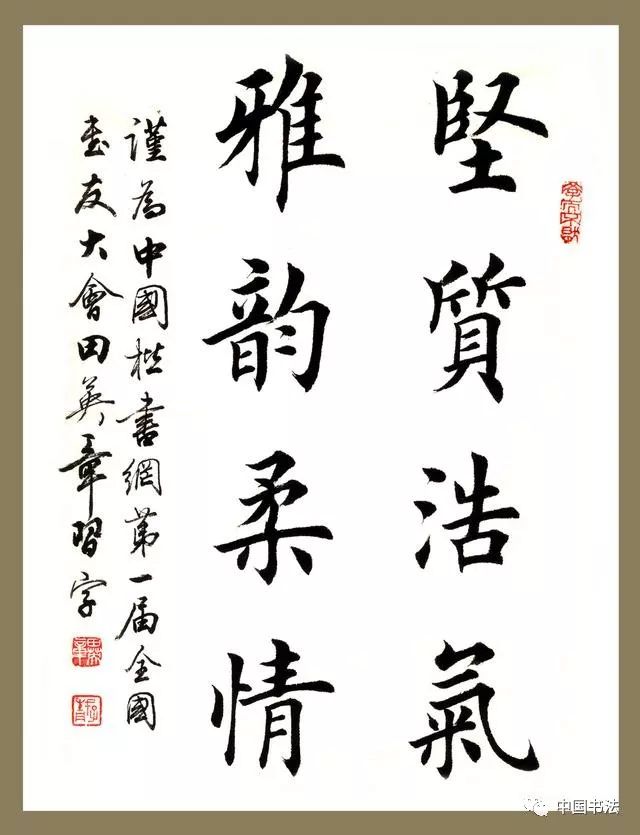 堅質浩氣
雅韵柔情
謹為中國楷書網第一届全國
書友大會田英章習字
中国书法